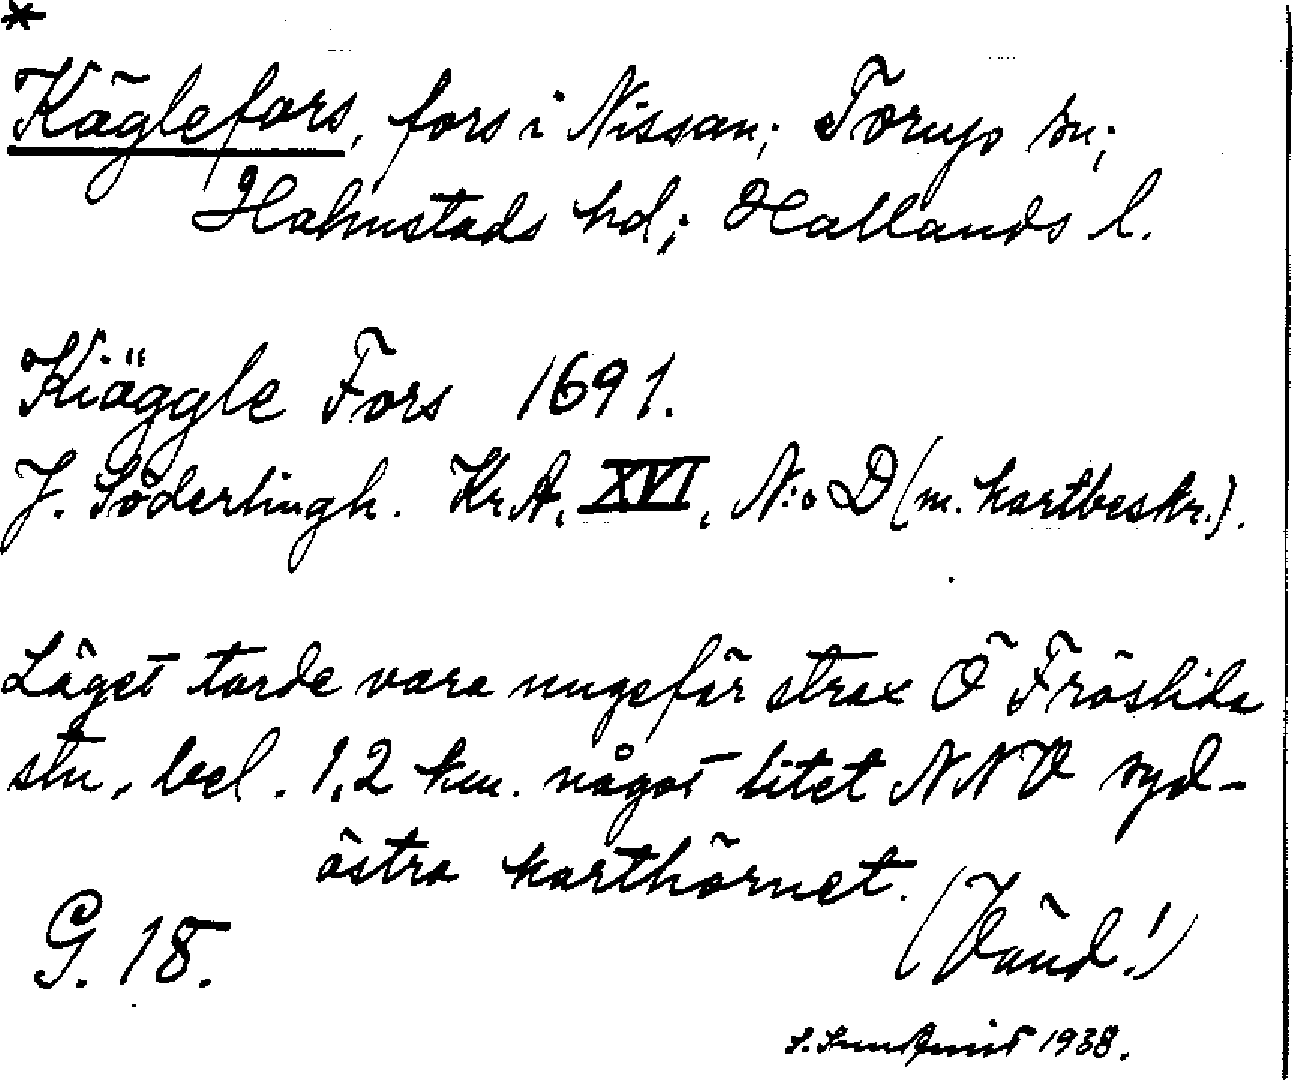 *
Käglefors, fors i Nissan; Torups sn;
Halmstads hd; Hallands l.
Kiäggle Fors 1691.
J. Söderlingh. Kr.A. XVI, N:o D (m. kartbeskr.).
Läget torde vara ungefär strax Ö Fröslida
stn, bel. 1,2 km. något litet NNO syd-
östra karthörnet.
(Vänd!)
G. 18.
1938.